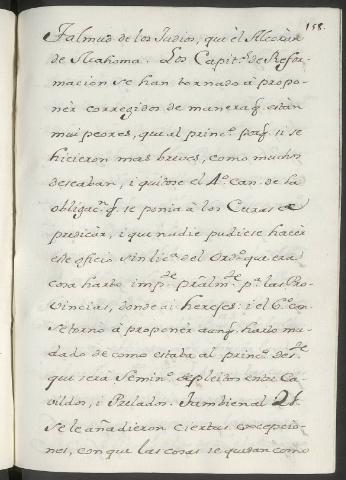 158.
Talmud de los Judios, que èl Alcoràn
de Mahoma. Los Capit.s de Refor-
macion se han tornado à propo-
nèr corregidos de manera q.e estàn
mui peores, que al princ.o porq.e si se
hicieron mas breves, como muchos
deseaban, i quitose el 4.o Can. de la
obligac.n q. se ponia à los Curas de
predicàr, i que nadie pudiese hacèr
este oficio sin lic.a del Ord.o que era
cosa harto imp.te prãlm.te p.a las Pro-
vincias, donde ai hereses: i el 6.o Can.
se torno à proponèr aunq. harto mu-
dado de como estaba al princ.o de
que serà Semin.o de pleitos entre Ca-
vildos, i Prelados. Tambien al
se le añadieron ciertas excepcio-
nes, con que las cosas se quedan como